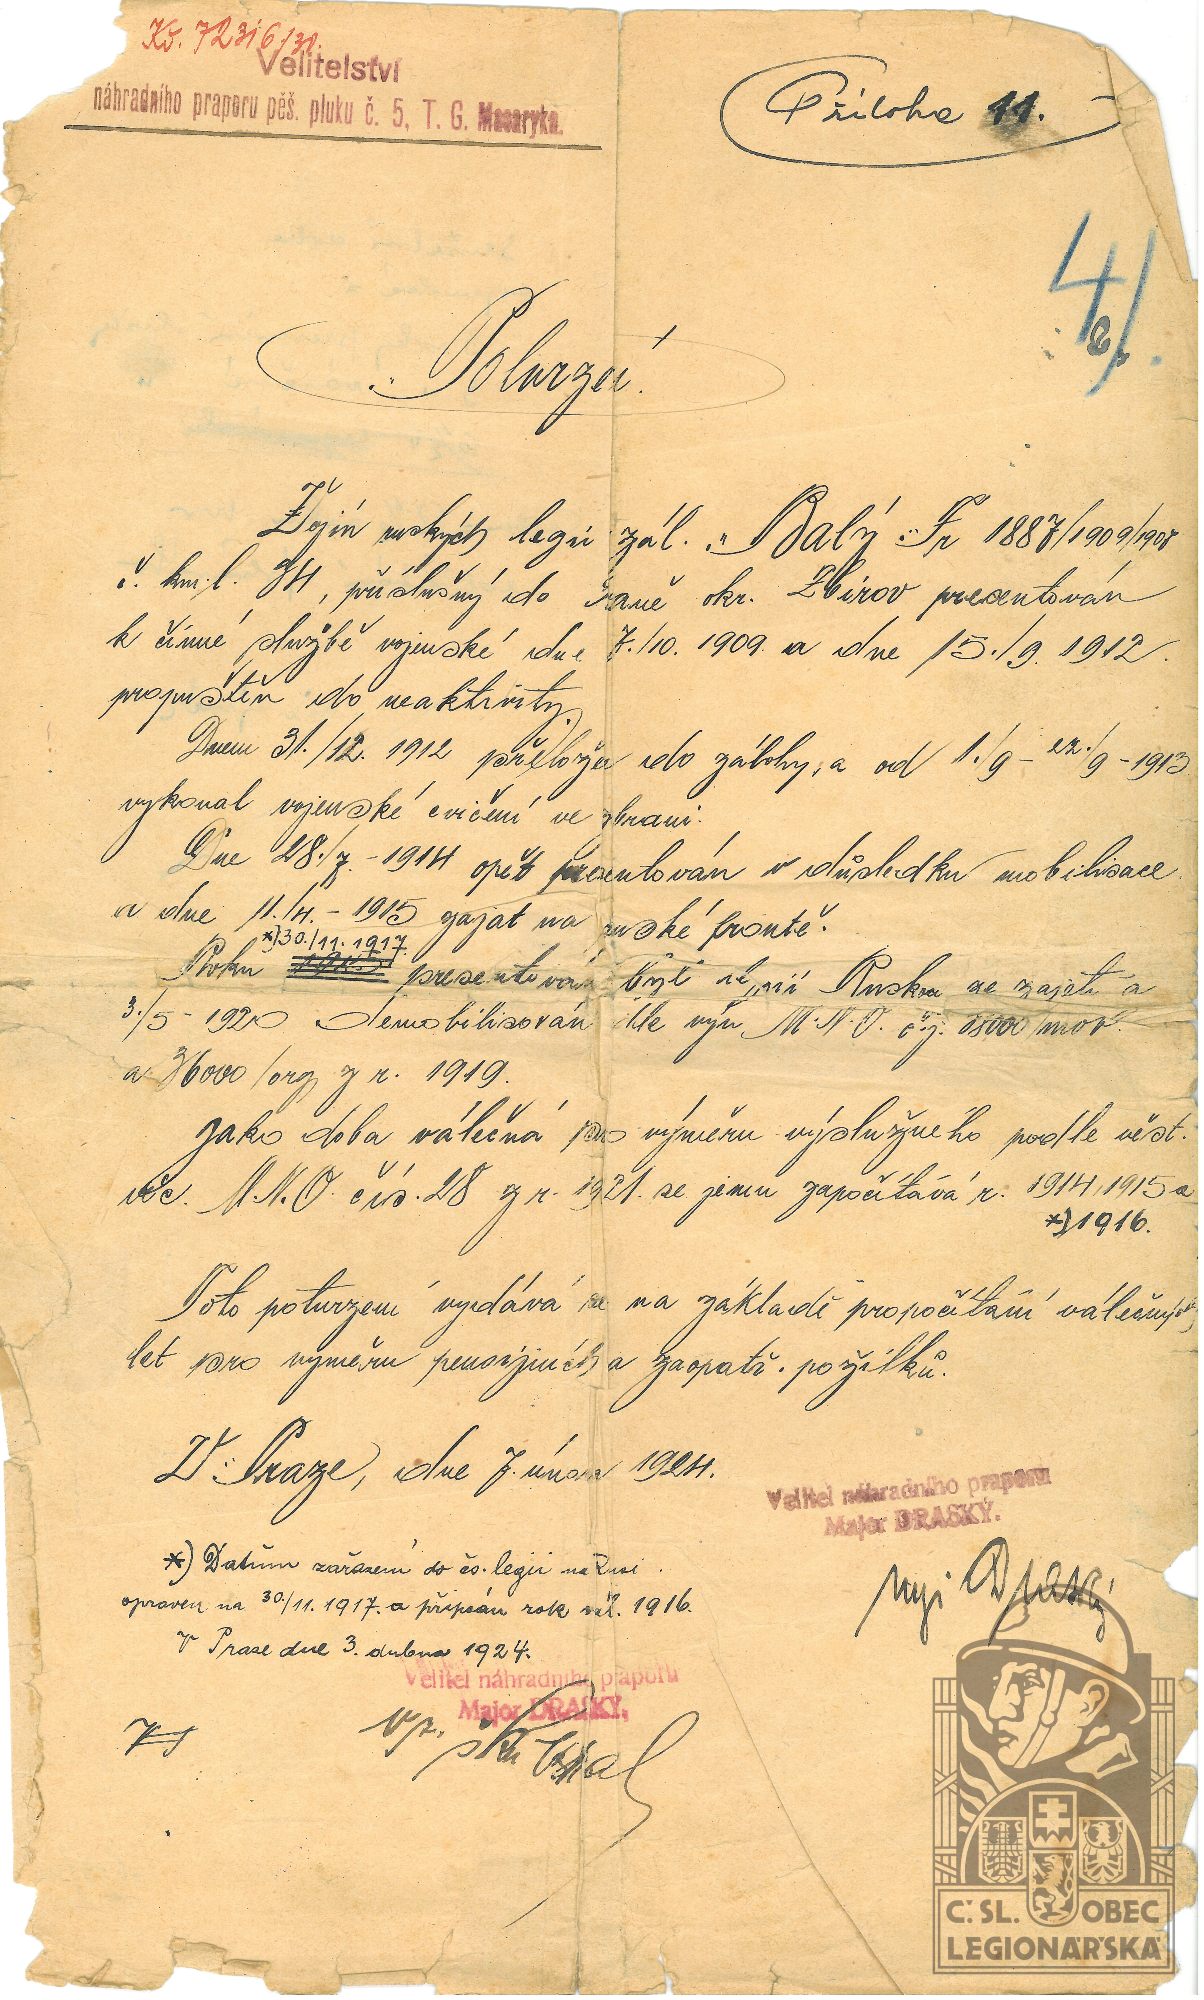 Kč. 72316/31.
Velitelství
náhradního praporu pěš. pluku č. 5, T. G. Masaryka.
Příloha 11.
4/
Potvrzení.
Vojín ruských legií zál. „Balý" Fr 1887/1909/1908
č. km. l. 74, příslušný do okr. Zbirov presentován
k činné službě vojenské dne 7./10. 1909. a dne 15./9. 1912.
propuštěn do neaktivity.
Dnem 31./12. 1912 přeložen do zálohy, a od 1./9 - 22./9 - 1913
vykonal vojenské cvičení ve zbrani.
Dne 28./7. - 1914 opět presentován v důsledku mobilisace
a dne 11./4. - 1915 zajat na ruské frontě.
*) 30./11. 1917.
Roku presentován byl do legií Ruska ze zajetí a
3./5 - 1920 demobilisován dle výn M.N.O. č.j. /mob.
a 36000/org z r. 1919.
Jako doba válečná pro výměru výslužného podle věst.
věc. M.N.O. čís. 28 z r. 1921. se jemu započítává r. 1914, 1915 a
*) 1916.
Toto potvrzení vydává se na základě propočítání válečných
let pro výměru pensijních a zaopatř. požitků.
V Praze, dne 7. února 1924.
Velitel náhradního praporu
Major DRASKÝ.
mjr Draský
*) Datum zařazení do čs. legií na Rusi
opraven na 30./11. 1917. a připsán rok vál. 1916.
V Praze dne 3. dubna 1924.
Velitel náhradního praporu
Major DRASKÝ.
vz.
Č. SL. OBEC
LEGIONÁŘSKÁ